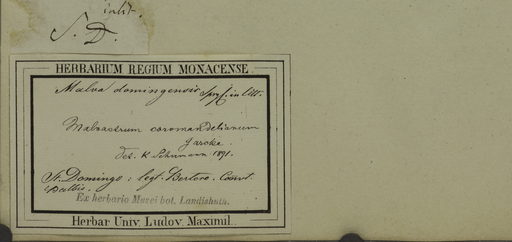 inlit.
S. D.
HERBARIUM REGIUM MONACENSE
Malva domingensis Spr. in litt.
Malvastrum coromandelianum
Garcke.
Det. K. Schumann 1891.
St. Domingo: legt. Bertero. Comt.
Balbis.
Ex herbario Musei bot. Landishuth.
Herbar. Univ. Ludov. Maximil.